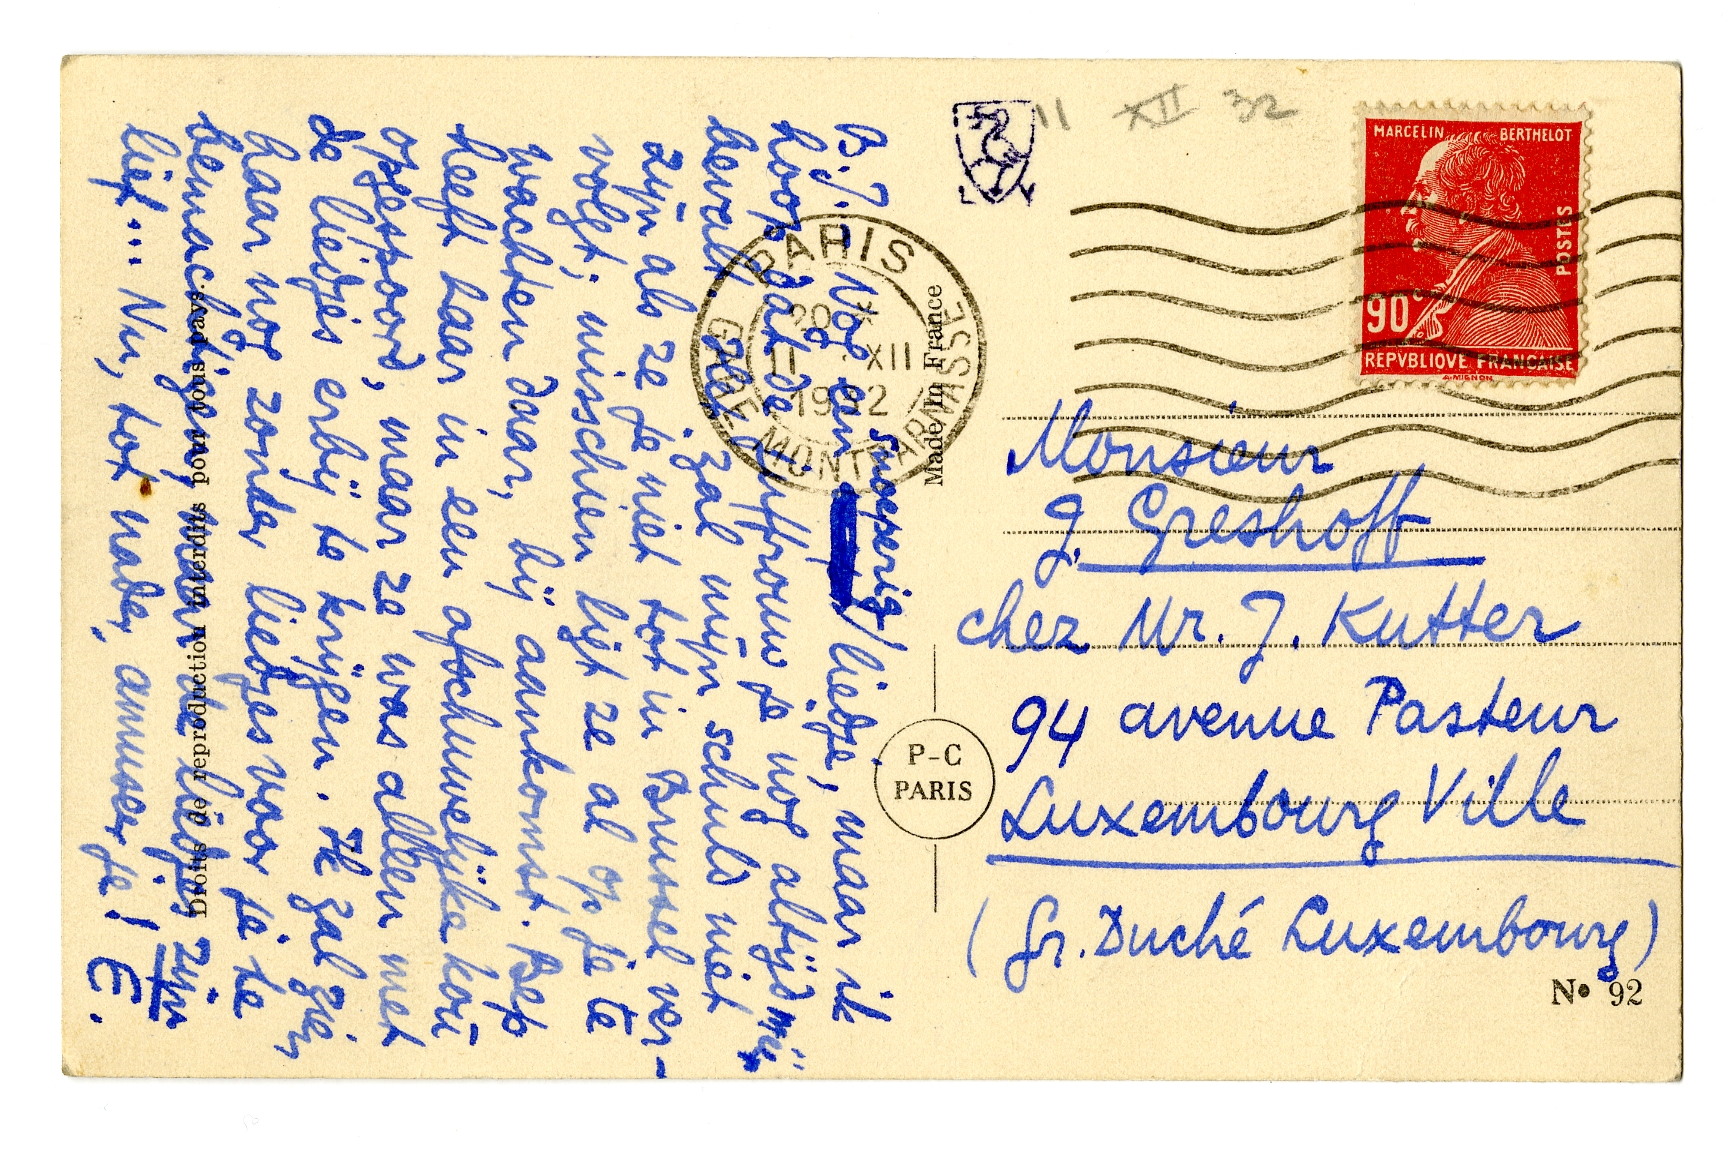 B.J. Nog een snoeperig liedje, maar ik
hoop dat de juffrouw je nog altijd mij
bevalt. Het zal mijn schuld niet
zijn als ze je niet tot in Brussel ver-
volgt; misschien ligt ze al op je te
wachten daar, bij aankomst. Bep
heeft haar in een afschuwelijke kou
opgespoord, maar ze was alleen met
de liedjes erbij te krijgen. Ik zal zien
haar nog zonder liedjes voor je te
bemachtigen, maar de liedjes zijn
lief... Nu, tot nader, amuseer je! E.
Droits de reproduction interdits pour tous pays.
Made in France
P-C
PARIS
PARIS
GARE MONTPARNASSE
20 *
11 XII
1932
11 XII 32
MARCELIN BERTHELOT
POSTES
90c
REPVBLIQVE FRANCAISE
A. MIGNON
Monsieur
J. Greshoff
chez Mr. J. Kutter
94 avenue Pasteur
Luxembourg Ville
(Gr. Duché Luxembourg)
No 92